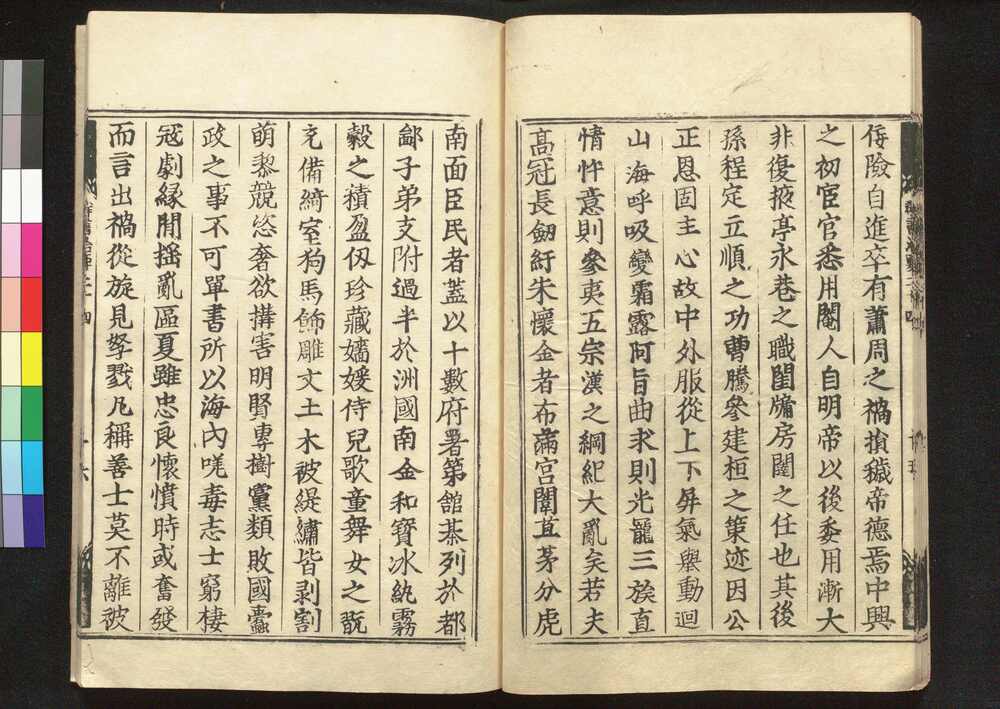 佞險自進卒有蕭周之禍損穢帝德焉中興
之初宦官悉用閹人自明帝以後委用漸大
非復掖亭永巷之職閨牖房闥之任也其後
孫程定立順之功曹騰參建桓之策迹因公
正恩固主心故中外服從上下屏氣舉動迴
山海呼吸變霜露阿旨曲求則光寵三族直
情忤意則參夷五宗漢之綱紀大亂矣若夫
高冠長劒紆朱懷金者布滿宮闈苴茅分虎
南面臣民者蓋以十數府署第舘棊列於都
鄙子弟支附過半於洲國南金和寶冰紈霧
縠之積盈仭珍藏嬙媛侍兒歌童舞女之翫
充備綺室狗馬飾雕文土木被緹繡皆剥割
萌黎競恣奢欲搆害明賢專樹黨類敗國蠹
政之事不可單書所以海內嗟毒志士窮棲
冦劇緣閒摇亂區夏雖忠良懷憤時或奮發
而言出禍從旋見孥戮凡稱善士莫不離被